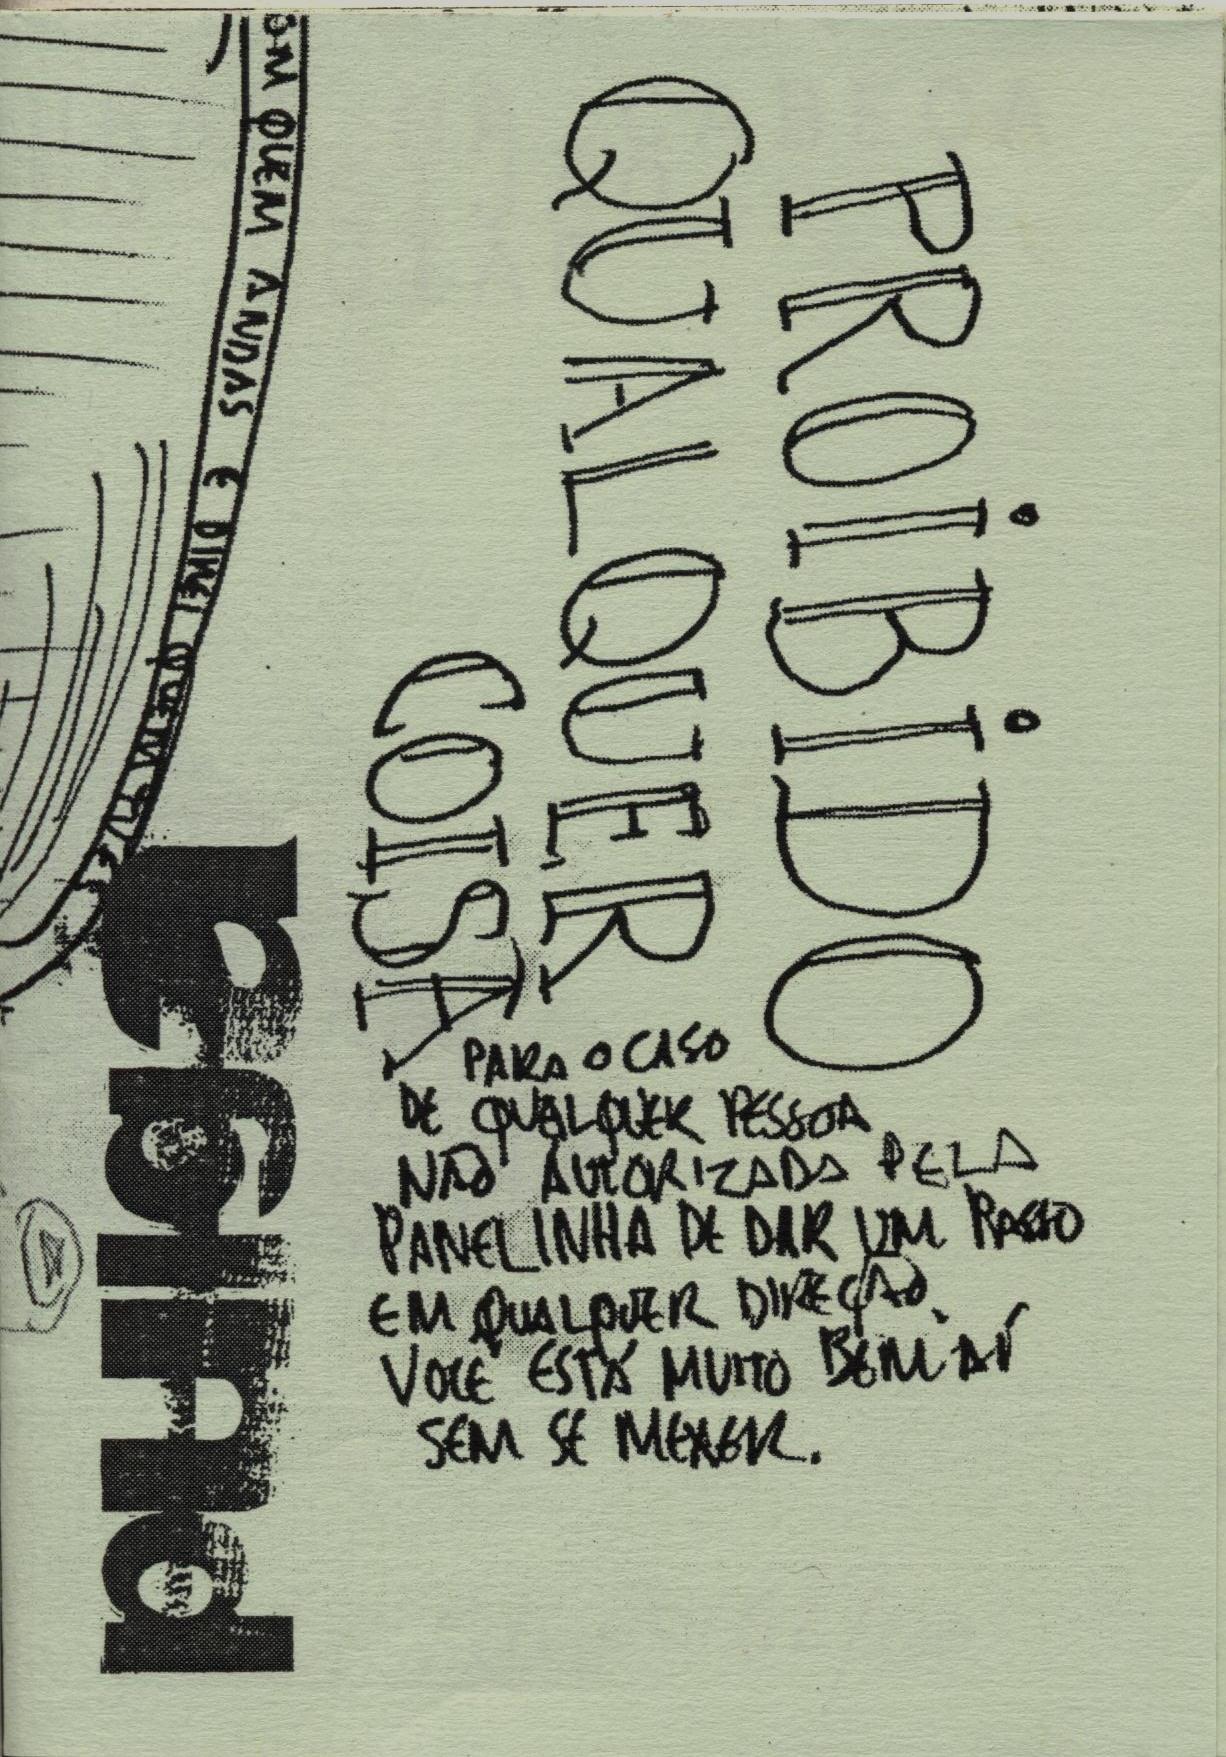 PROIBIDO
QUALQUER
COISA
PARA O CASO
DE QUALQUER PESSOA
NÃO AUTORIZADA PELA
PANELINHA DE DAR UM PASSO
EM QUALQUER DIREÇÃO.
VOCE ESTÁ MUITO BEM AÍ
SEM SE MEXER.
OM QUEM ANDAS E DIREI QUEM